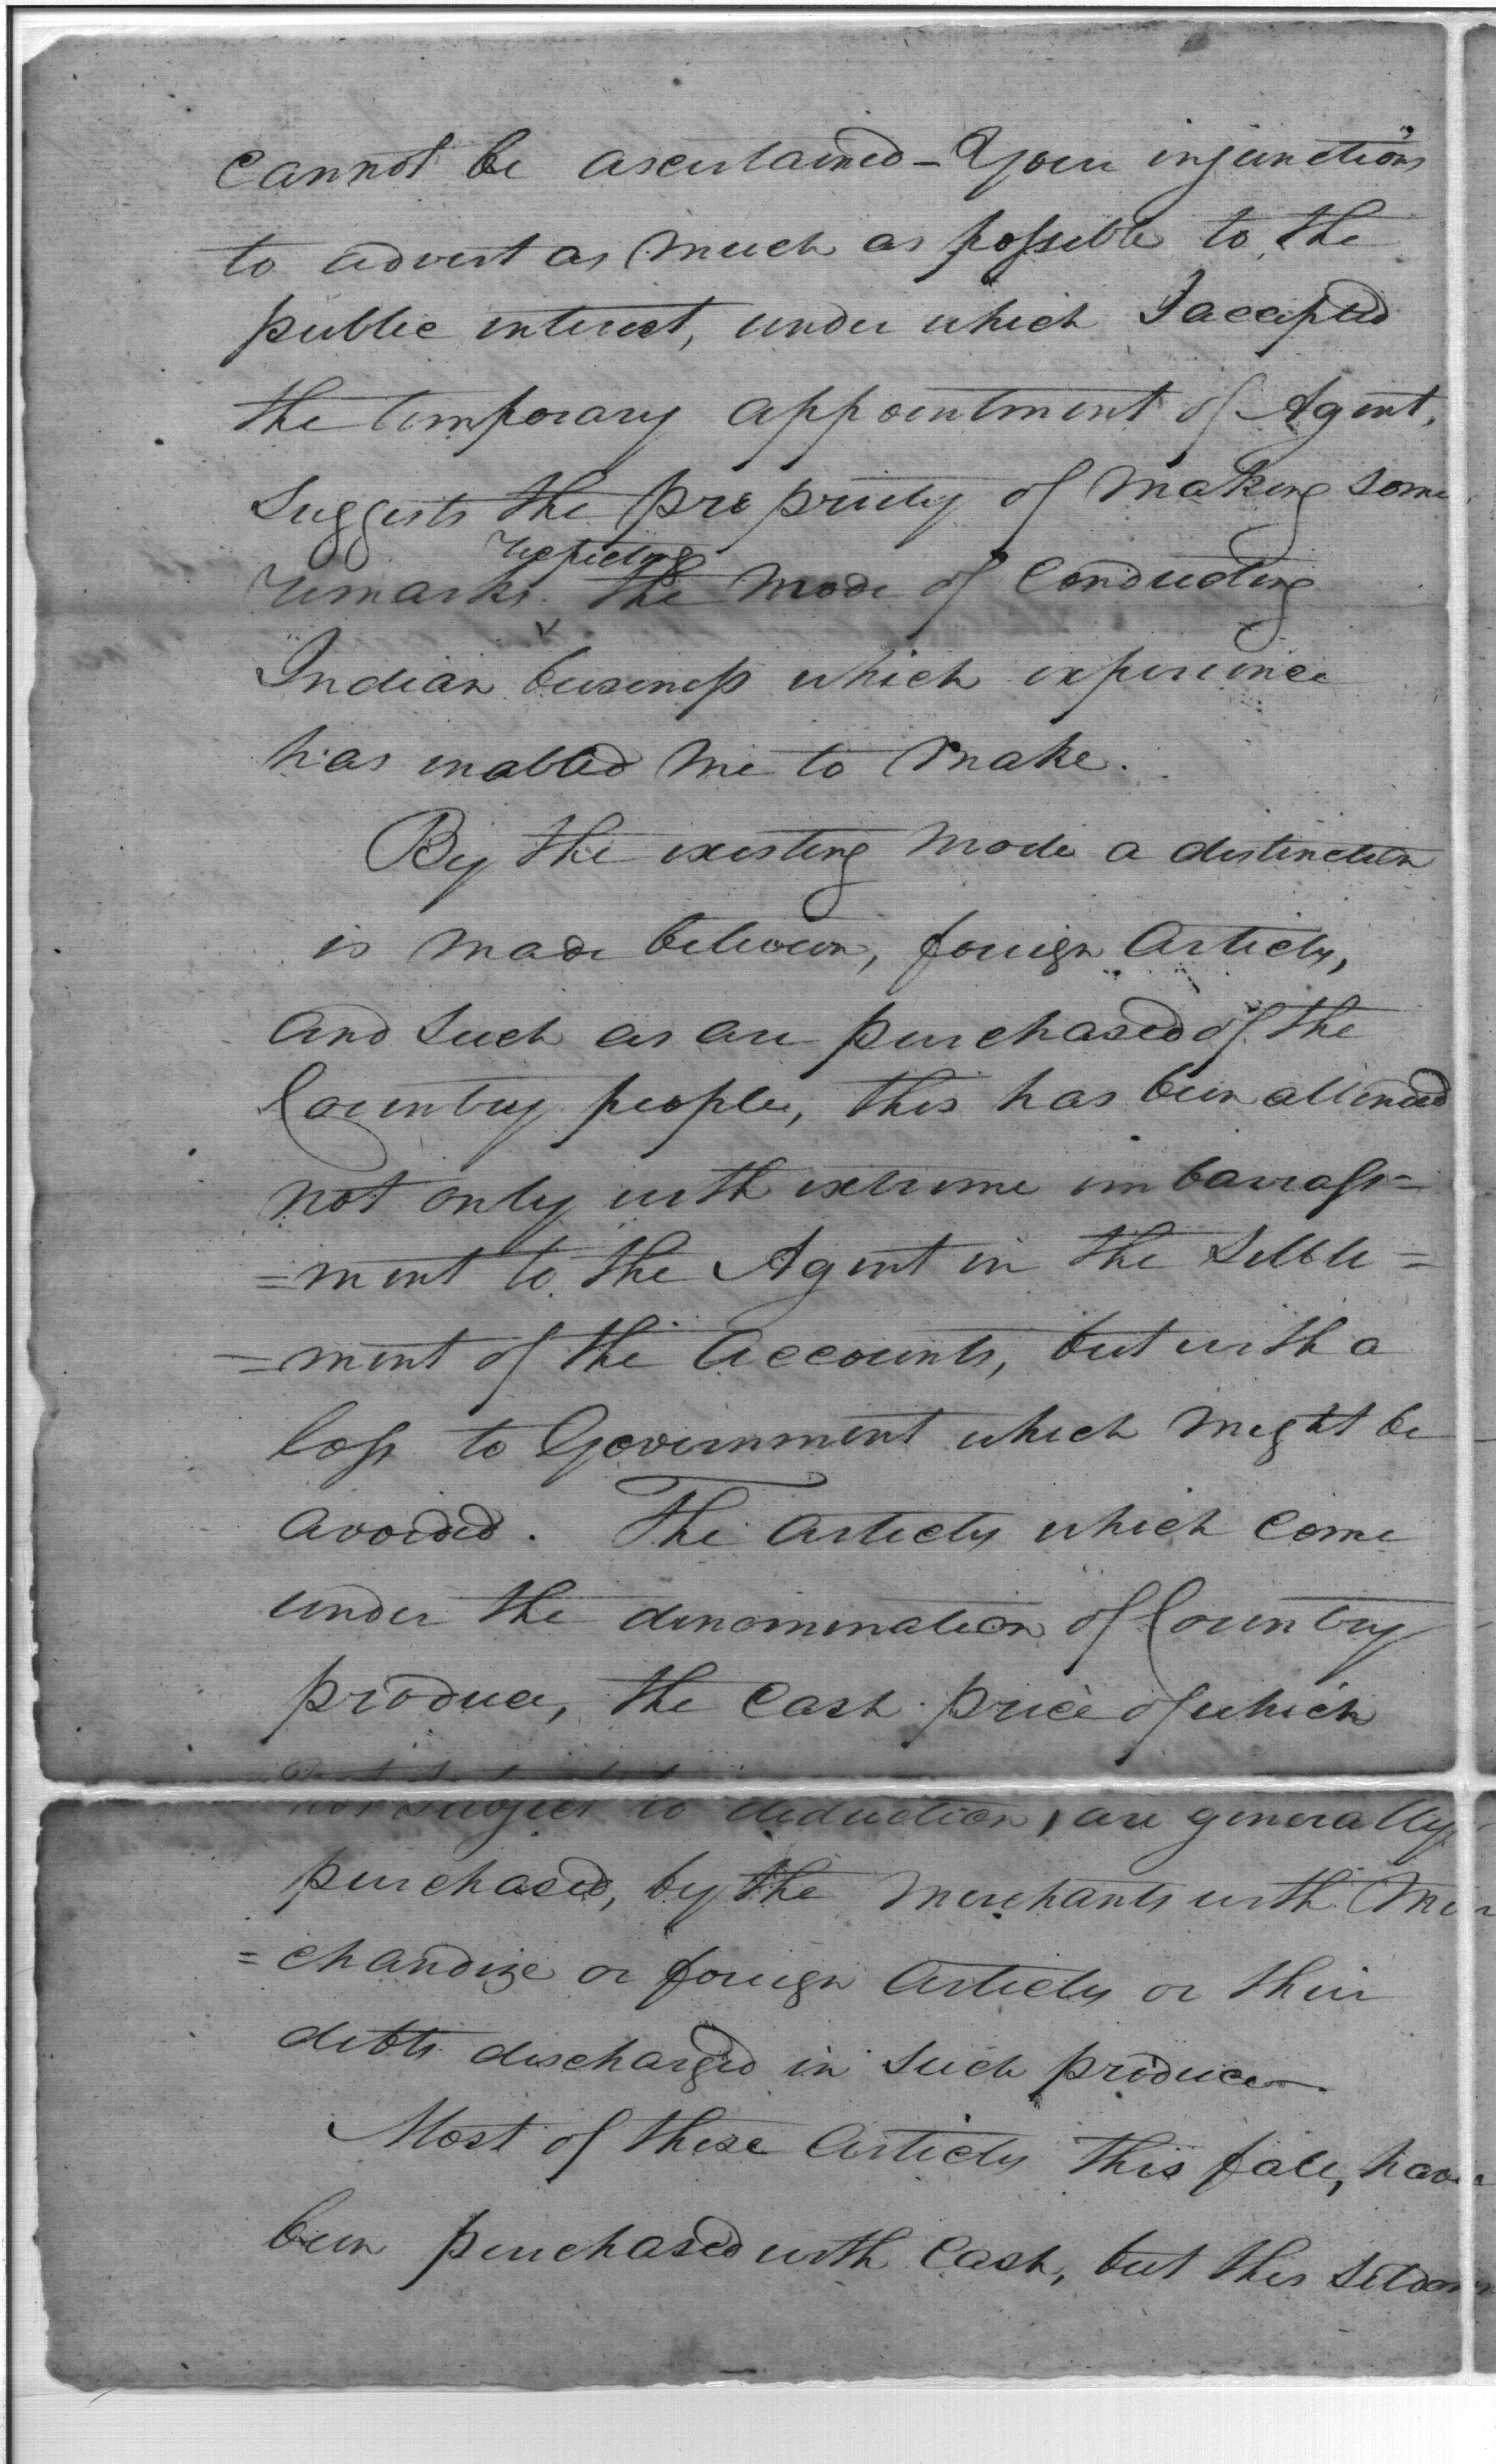 cannot be ascertained - Your injunctions
to advert as much as possible to the
public interest, under which I accepted
the temporary appointment of Agent,
suggests the propriety of making some
respecting
remarks the mode of conducting
Indian business which experience
has enabled me to make.
By the existing mode a distinction
is made between, foreign Articles,
and such as are purchased of the
Country people, this has been attended
not only with extreme imbarrass=
=ment to the Agent in the settle=
=ment of the Accounts, but with a
loss to Government which might be
avoided. The Articles which come
under the denomination of Country
produce, the Cash price of which
not subject to deduction, are generally
purchased, by the Merchants with Mer
=chandize or foreign Articles or their
debts discharged in such produce-
Most of these Articles this fall, have
been purchased with Cash, but this seldom